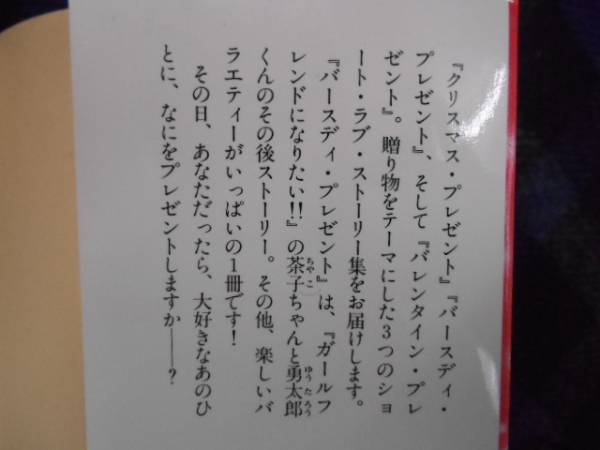 『クリスマス・プレゼント』『バースディ・
プレゼント』、そして『バレンタイン・プレ
ゼント』。贈り物をテーマにした3つのショ
ート・ラブ・ストーリー集をお届けします。
『バースディ・プレゼント』は、『ガールフ
レンドになりたい!!』の茶子ちゃんと勇太郎
ちゃこ
ゆうたろう
くんのその後ストーリー。その他、楽しいバ
ラエティーがいっぱいの1冊です!
その日、あなただったら、大好きなあのひ
とに、なにをプレゼントしますか――?